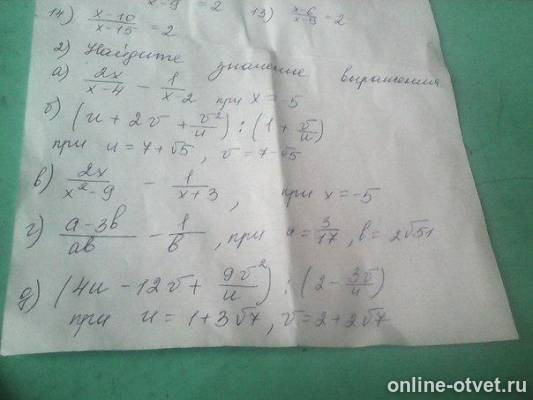 x-9 = 2
14) x-10/x-15 = 2 13) x-6/x-9 = 2
2) Найдите значение выражения
а) 2x/x-4 - 1/x-2 при x = -5
б) (u + 2v + v²/u) : (1 + v/u)
при u = 7+√5, v = 7-√5
в) 2x/x²-9 - 1/x+3, при x = -5
г) a-3b/ab - 1/b, при a = 3/17, b = 2√51
д) (4u - 12v + 9v²/u) : (2 - 3v/u)
при u = 1+3√7, v = 2+2√7
online-otvet.ru